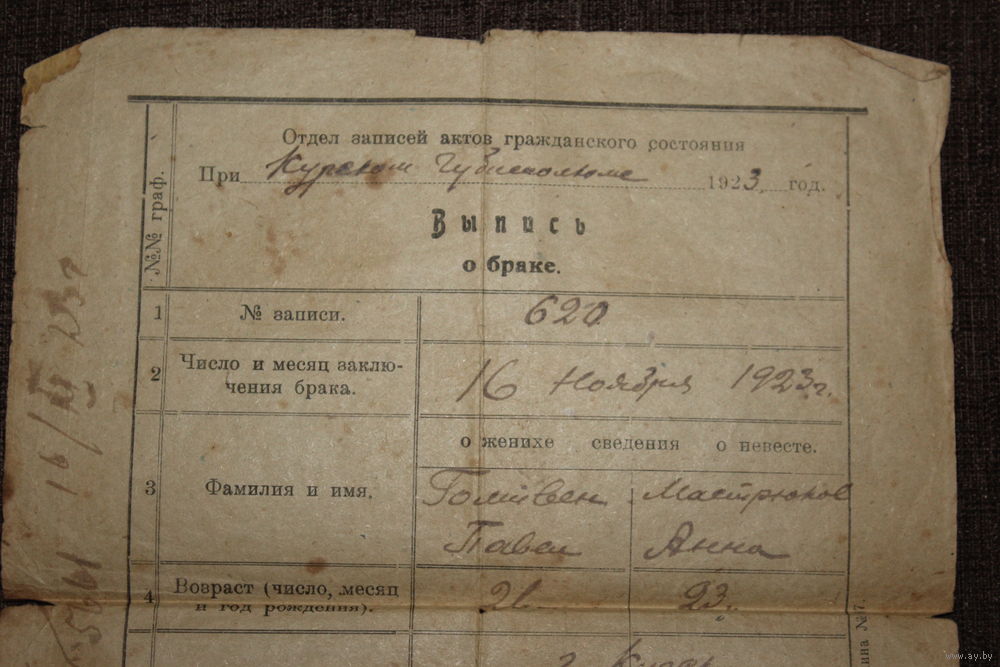 Отдел записей актов гражданского состояния
При Курском Губисполкоме 1923 год.
Выпись
о браке.
№№ граф.
1 № записи. 620
2 Число и месяц заклю-
чения брака. 16 Ноября 1923 г.
о женихе сведения о невесте.
3 Фамилия и имя.
Мастрюков
Павел Анна
4 Возраст (число, месяц
и год рождения). 23
ина № 7.
16/XI 23 г
www.ay.by